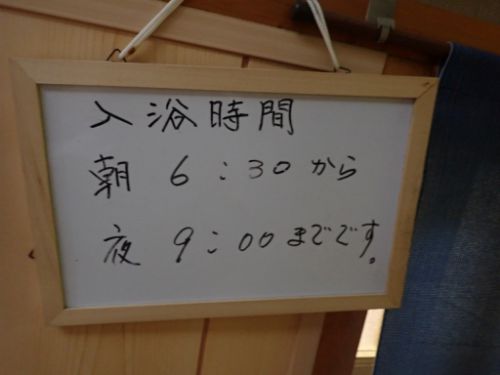 入浴時間
朝 6:30から
夜 9:00までです。